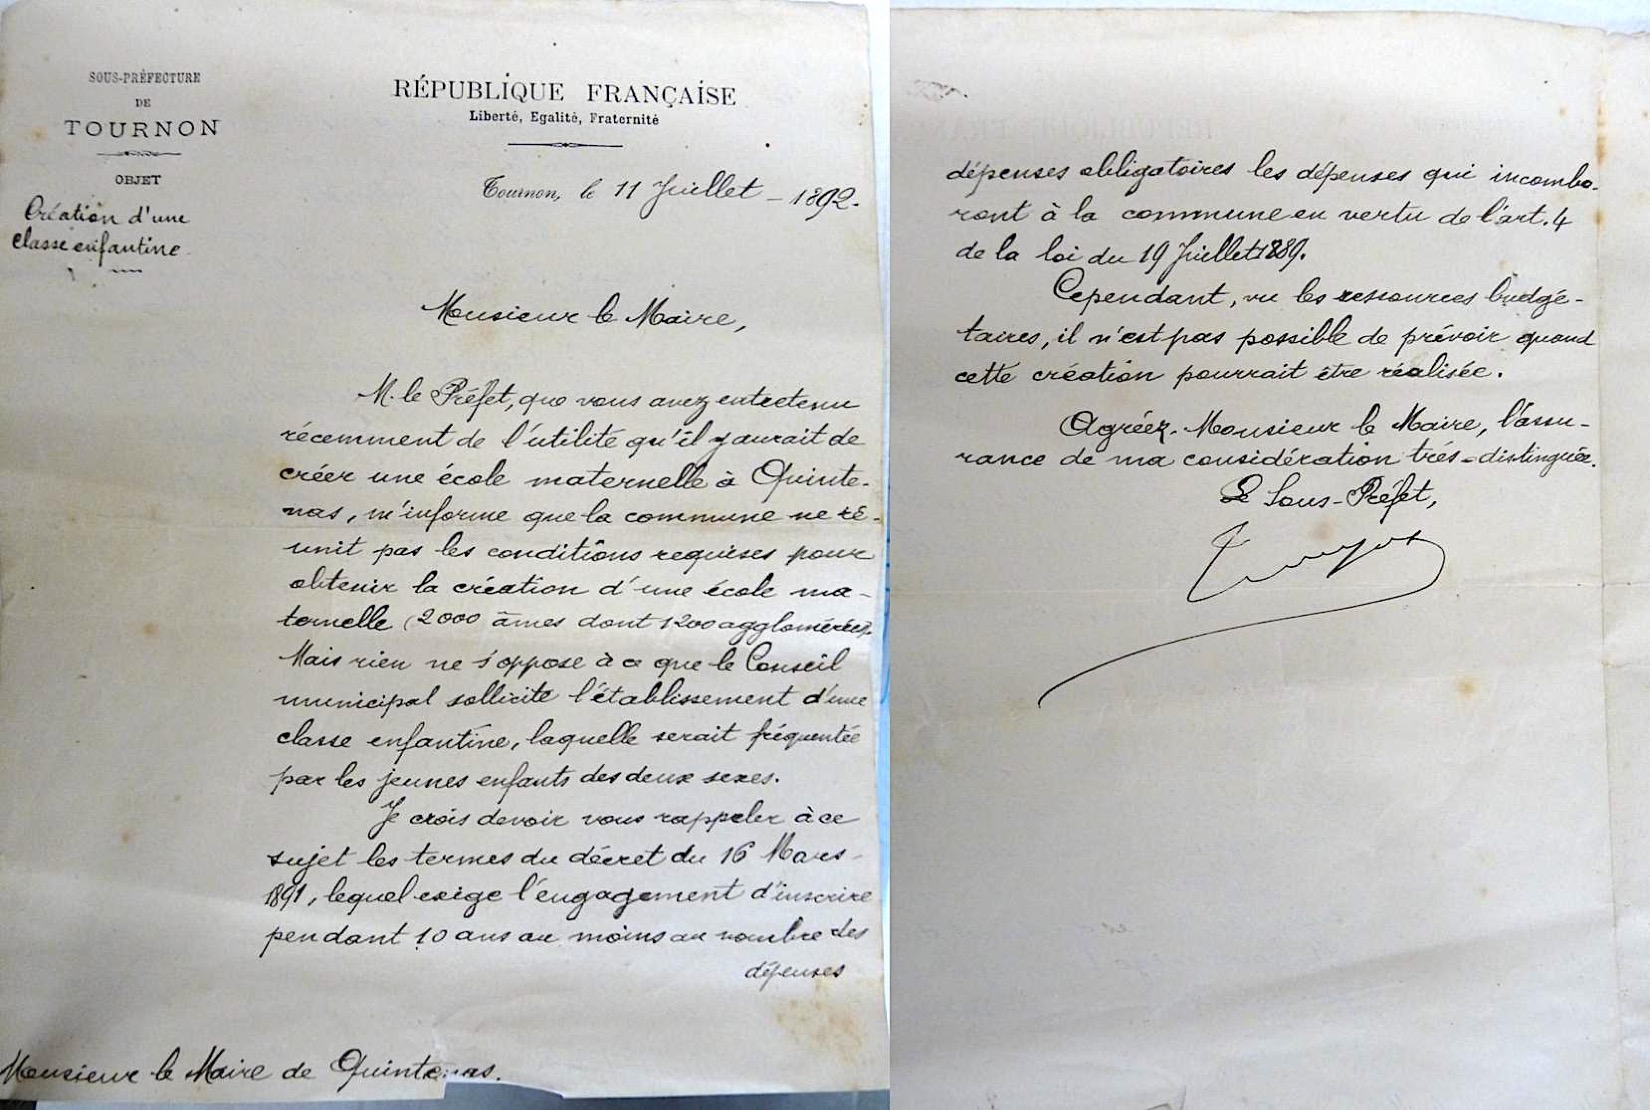 SOUS-PRÉFECTURE
DE
TOURNON
OBJET
Création d'une
classe enfantine
RÉPUBLIQUE FRANÇAISE
Liberté, Egalité, Fraternité
Tournon, le 11 Juillet - 1892.
Monsieur le Maire,
M. le Préfet, que vous avez entretenu
récemment de l'utilité qu'il y aurait de
créer une école maternelle à Quinte-
nas, m'informe que la commune ne ré-
unit pas les conditions requises pour
obtenir la création d'une école ma-
ternelle (2000 âmes dont 1200 agglomérées).
Mais rien ne s'oppose à ce que le Conseil
municipal sollicite l'établissement d'une
classe enfantine, laquelle serait fréquentée
par les jeunes enfants des deux sexes.
Je crois devoir vous rappeler à ce
sujet les termes du décret du 16 Mars
1891, lequel exige l'engagement d'inscrire
pendant 10 ans au moins au nombre des
dépenses
Monsieur le Maire de Quintenas.
dépenses obligatoires les dépenses qui incombe-
ront à la commune en vertu de l'art. 4
de la loi du 19 Juillet 1889.
Cependant, vu les ressources budgé-
taires, il n'est pas possible de prévoir quand
cette création pourrait être réalisée.
Agréez, Monsieur le Maire, l'assu-
rance de ma considération très-distinguée.
Le Sous-Préfet,